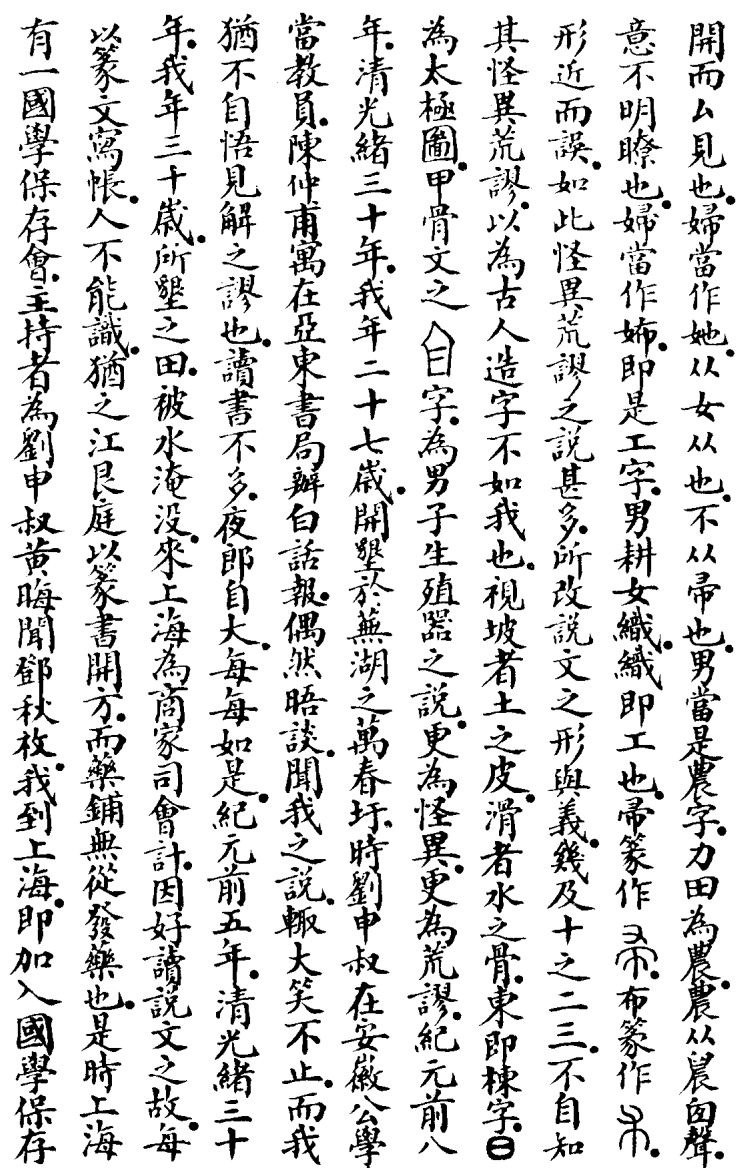 開而厶見也。婦當作她。从女从也。不从帚也。男當是農字。力田為農。農从晨囪聲。
意不明瞭也。婦當作婖。即是工字。男耕女織。織即工也。帚篆作。布篆作。
形近而誤。如此怪異荒謬之說甚多。所改說文之形與義。幾及十之二三。不自知
其怪異荒謬。以為古人造字不如我也。視坡者土之皮。滑者水之骨。東即棟字。日
為太極圖。甲骨文之字。為男子生殖器之說。更為怪異。更為荒謬。紀元前八
年。清光緒三十年。我年二十七歲。開墾於蕪湖之萬春圩。時劉申叔在安徽公學
當教員。陳仲甫寓在亞東書局辦白話報。偶然晤談。聞我之說。輒大笑不止。而我
猶不自悟見解之謬也。讀書不多。夜郎自大。每每如是。紀元前五年。清光緒三十
年。我年三十歲。所墾之田。被水淹没。來上海為商家司會計。因好讀說文之故。每
以篆文寫帳。人不能識。猶之江艮庭以篆書開方。而藥鋪無從發藥也。是時上海
有一國學保存會。主持者為劉申叔黃晦聞鄧秋枚。我到上海。即加入國學保存